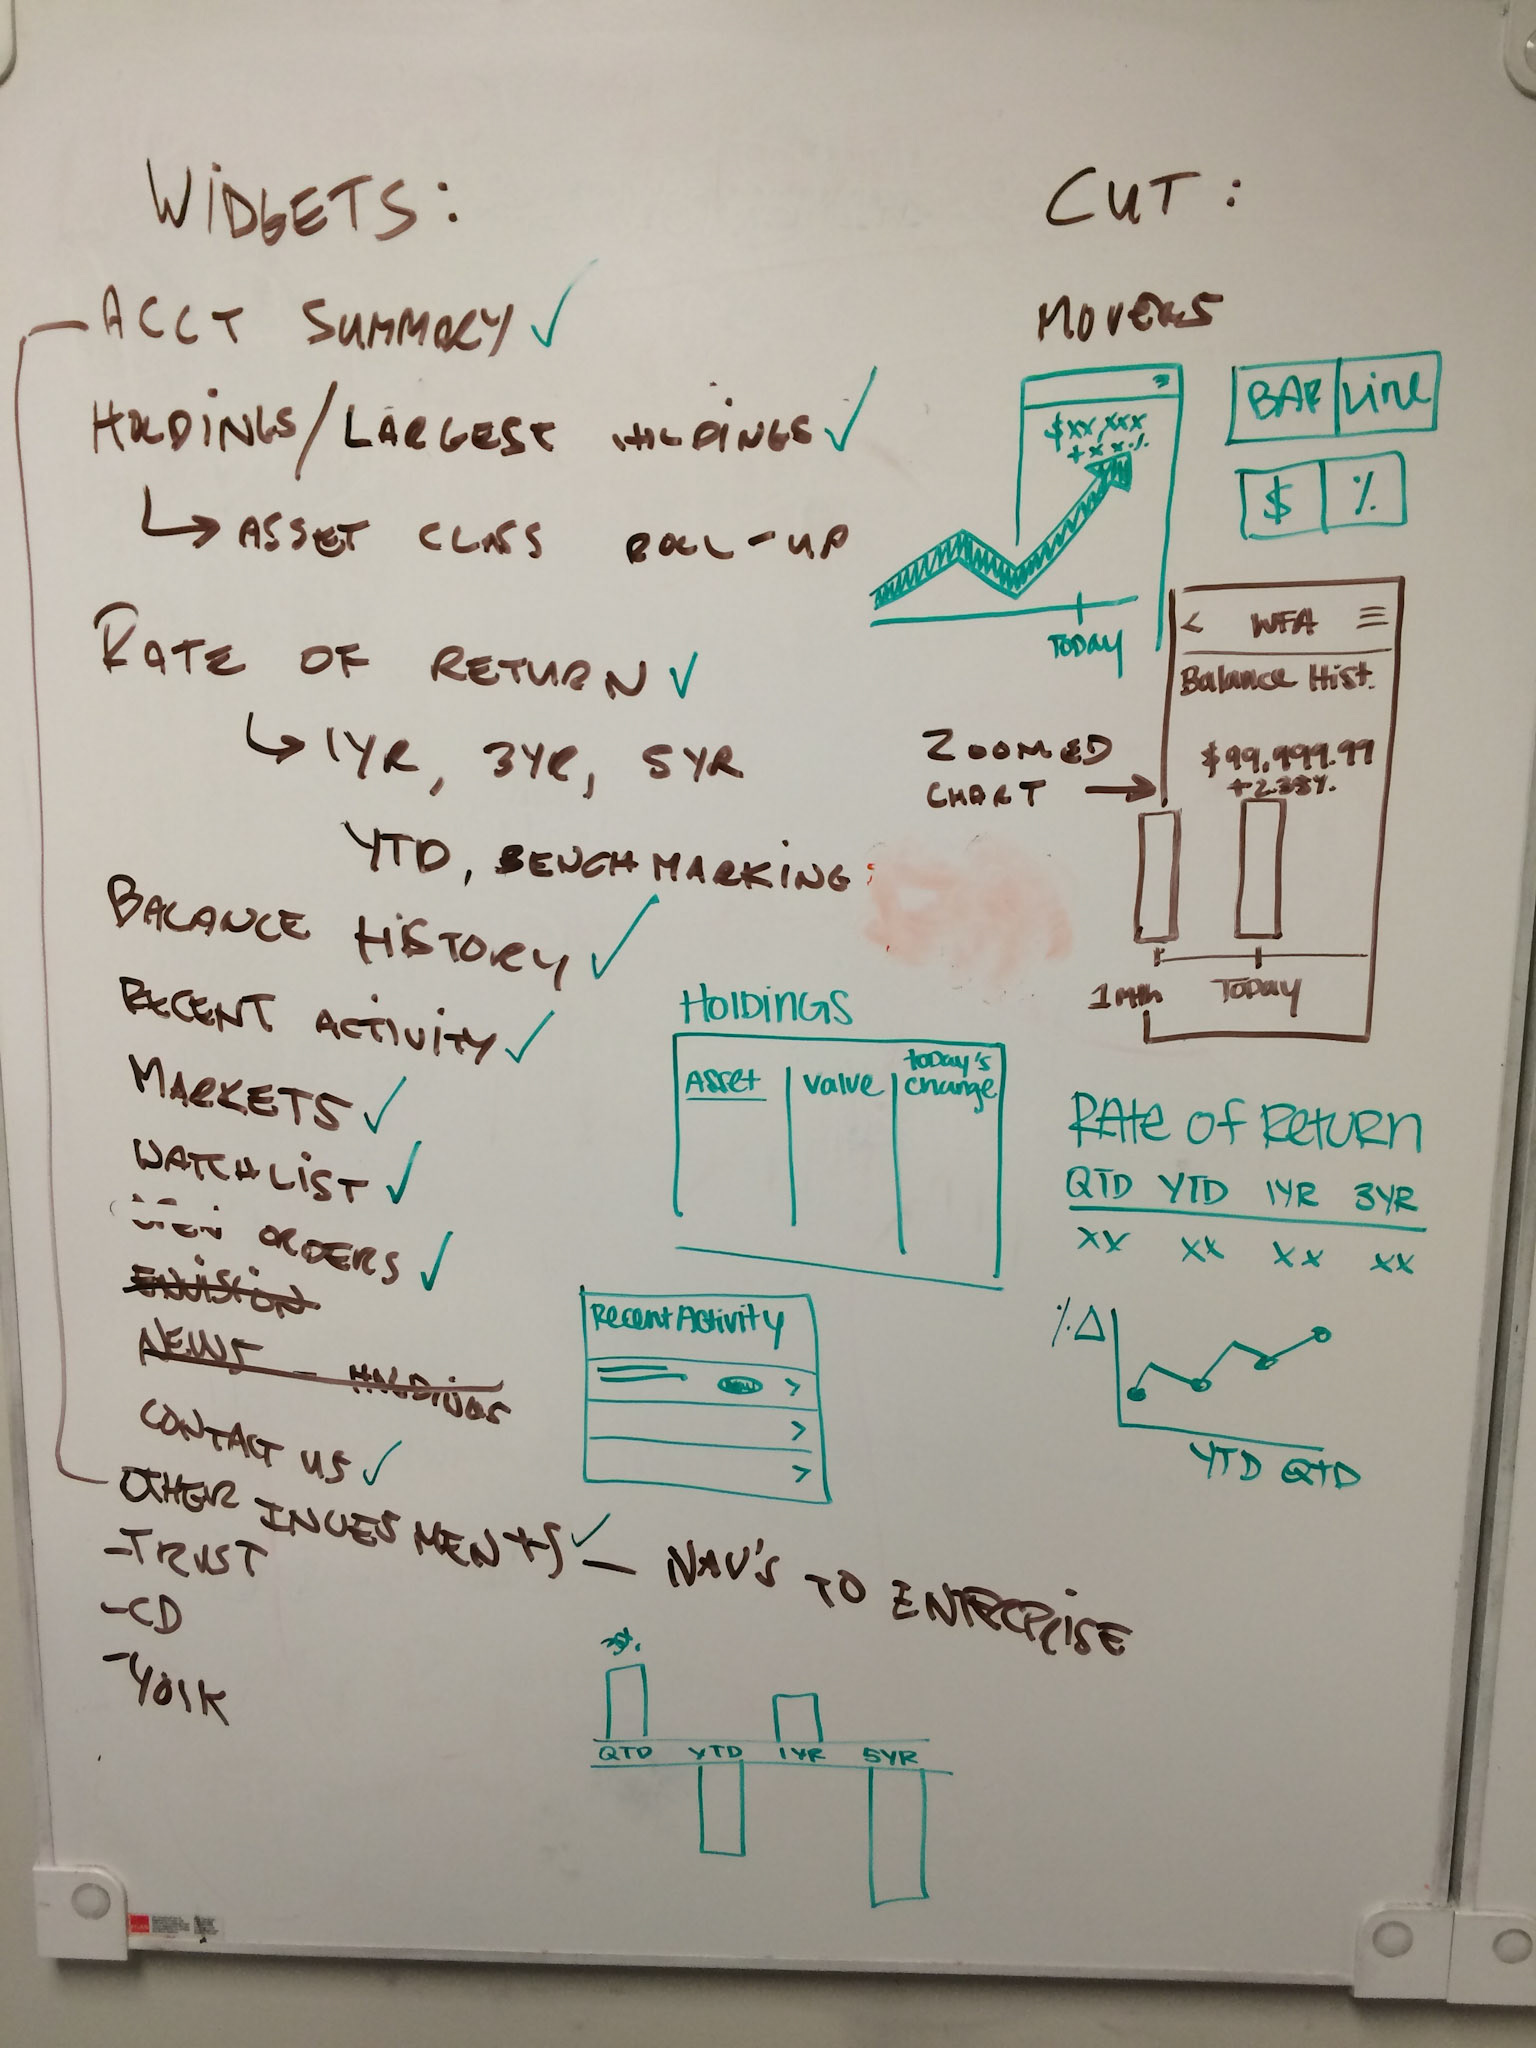 WIDGETS:
ACCT SUMMARY ✓
HOLDINGS/LARGEST HOLDINGS ✓
↳ ASSET CLASS ROLL-UP
RATE OF RETURN ✓
↳ 1YR, 3YR, 5YR
YTD, BENCHMARKING
BALANCE HISTORY ✓
RECENT ACTIVITY ✓
MARKETS ✓
WATCHLIST ✓
OPEN ORDERS ✓
ENVISION
NEWS - HOLDINGS
CONTACT US ✓
OTHER INVESMENTS ✓ - NAV'S TO ENTERPRISE
-TRUST
-CD
-401K
CUT:
MOVERS
$XX,XXX
+XX%
TODAY
BAR Line
$ %
< WFA ≡
Balance Hist.
$99,999.99
+2.38%
ZOOMED
CHART →
1Mth TODAY
HOLDINGS
Asset value today's
change
Recent Activity
NEW >
>
>
RAte of Return
QTD YTD 1YR 3YR
XX XX XX XX
%Δ
YTD QTD
QTD YTD 1YR 5YR